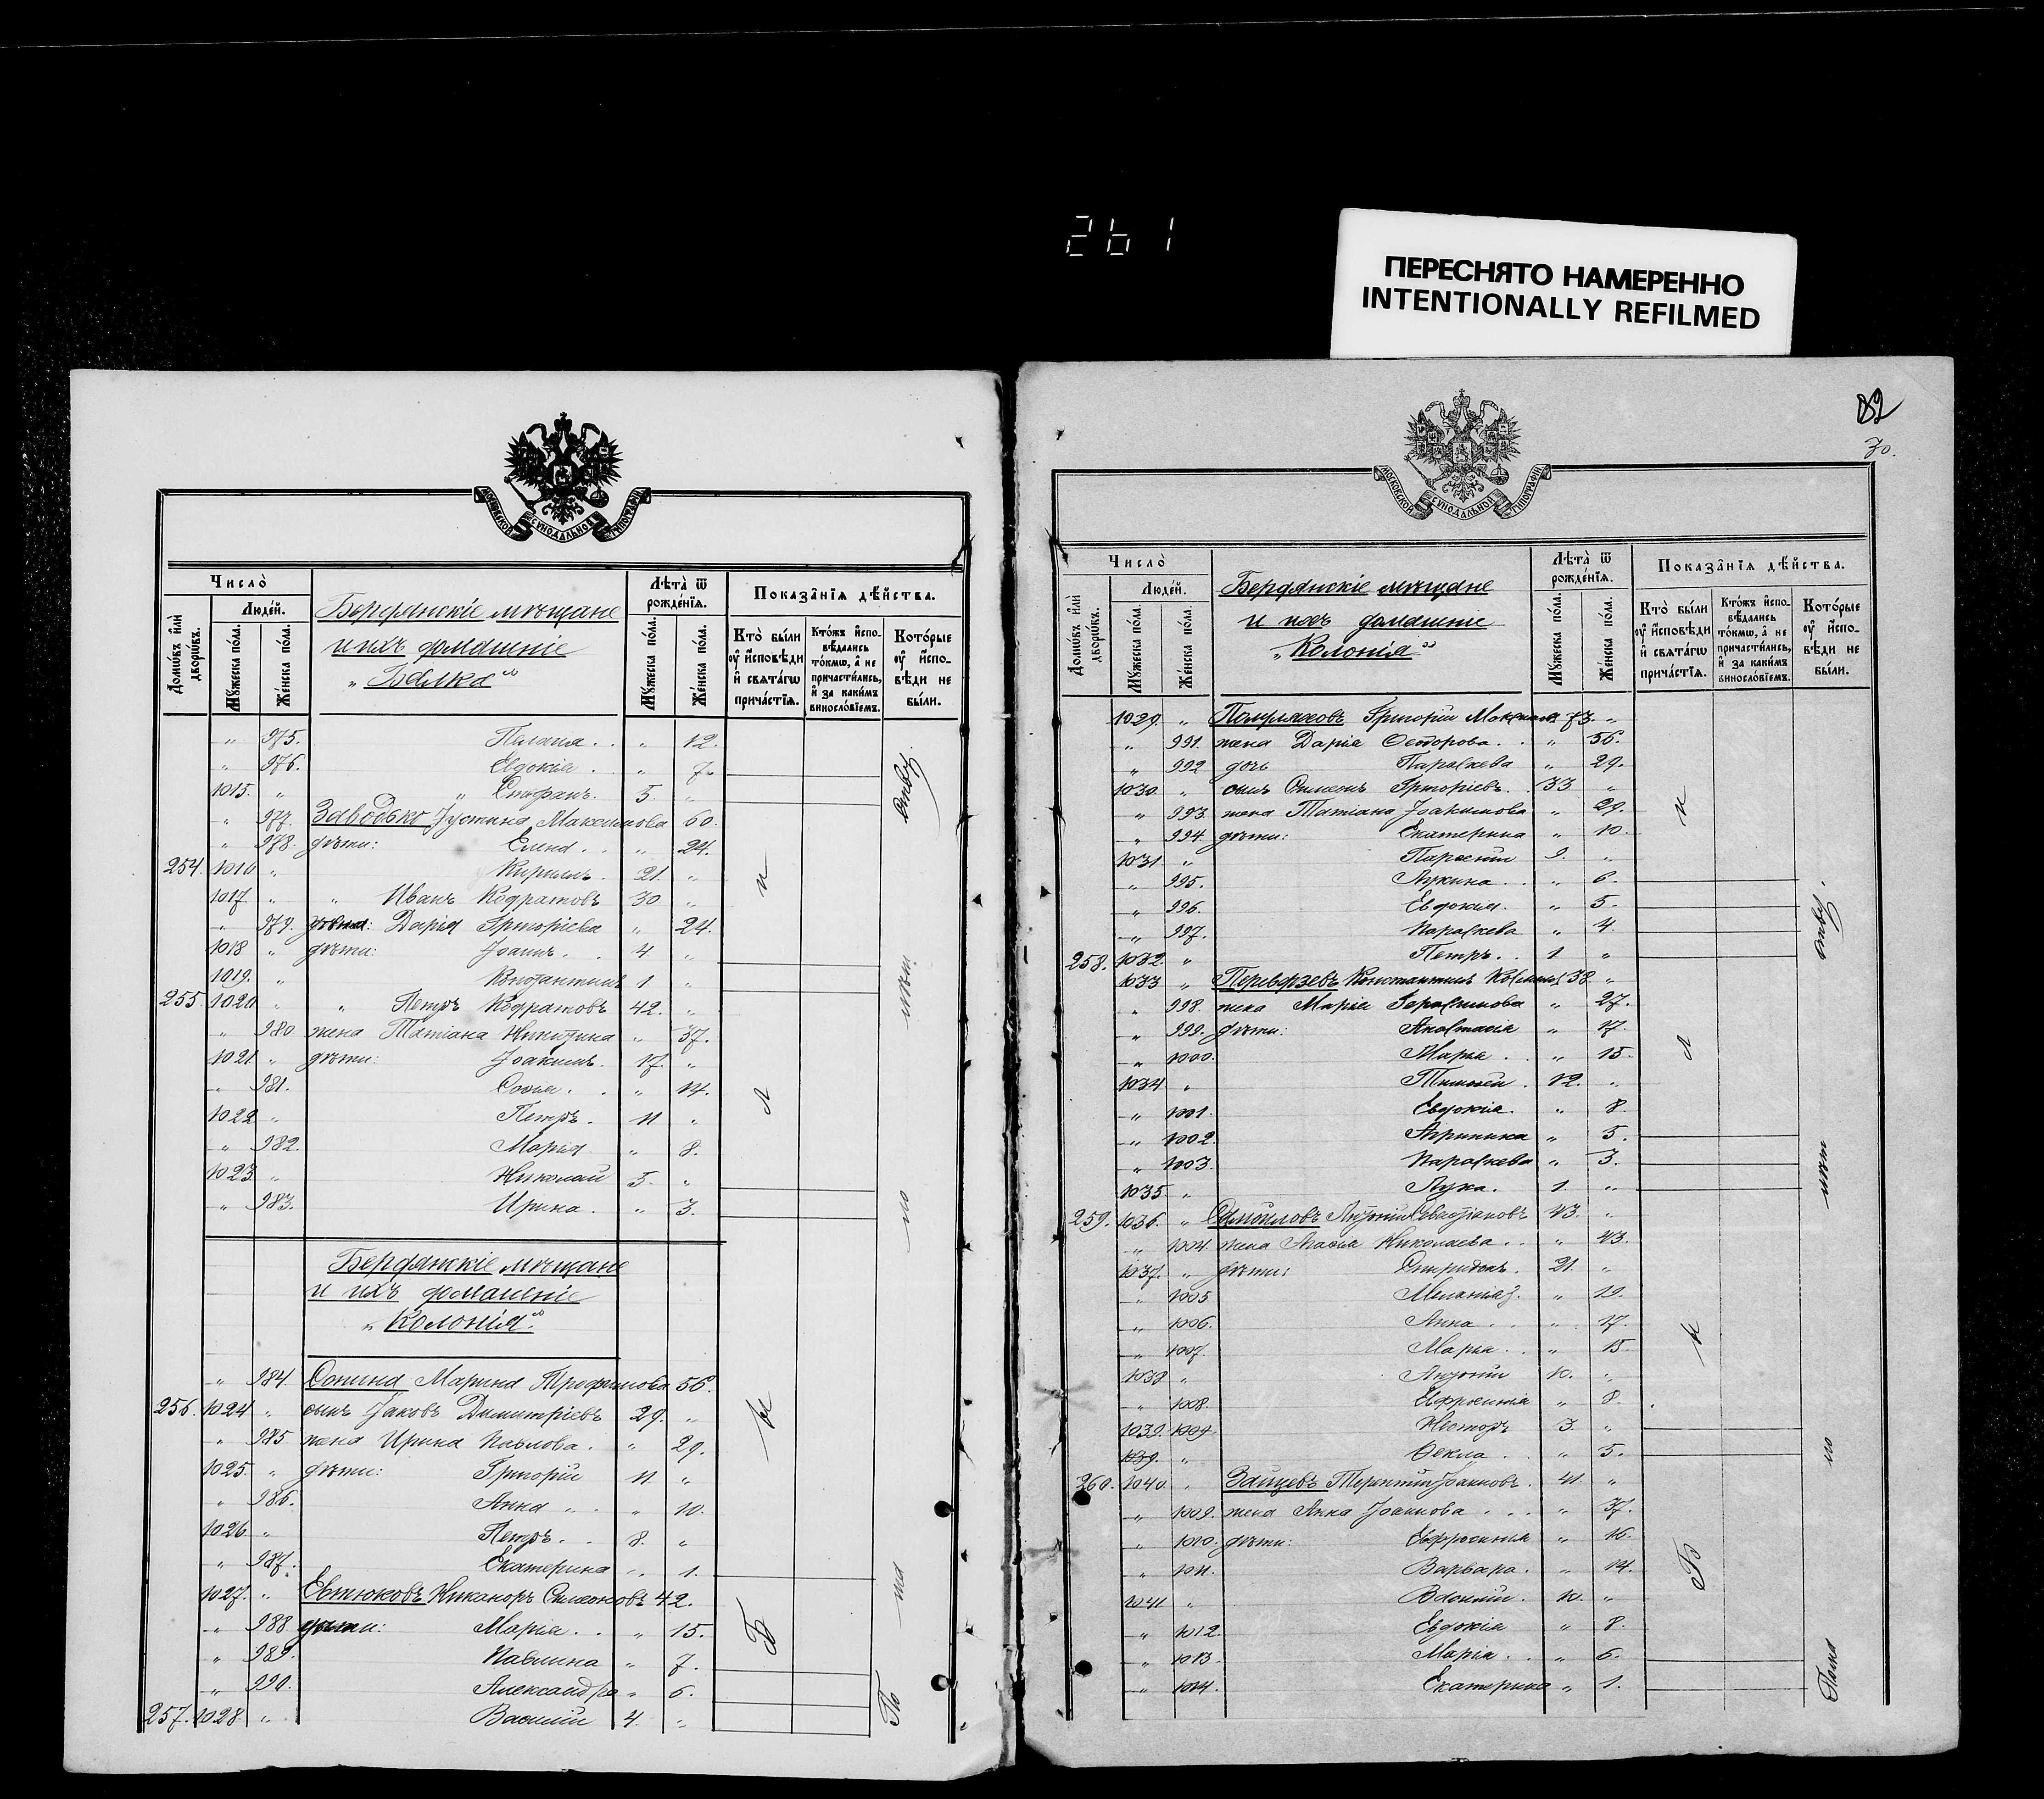 261
ПЕРЕСНЯТО НАМЕРЕННО
INTENTIONALLY REFILMED
МОСКОВСКОЙ СУНОДАЛЬНОЙ ТИПОГРАФІИ
Число̀
Домѡ́въ и҆лѝ дворѡ́въ.
Люде́й.
Мꙋ́жеска по́ла.
Же́нска по́ла.
Бердянскіе мѣщане
и ихъ домашніе
„Балка“
Лѣта̀ ѿ рожде́нїѧ.
Мꙋ́жеска по́ла.
Же́нска по́ла.
Показа̑нїѧ дѣ́йства.
Кто̀ бы́ли ᲂу҆ и҆сповѣ́ди и҆ свѧта́гѡ прича́стїѧ.
Кто́жъ и҆спо-вѣ́дались то́кмѡ, а҆ не причасти́лись, и҆ за каки́мъ винослові́емъ.
Кото́рые ᲂу҆ и҆спо-вѣ́ди не бы́ли.
„ 975. Пелагія . . „ 12.
„ 976. Евдокія . „ 7.
1015. „ „ Стефанъ. 5. „
„ 977. Заводько Іустина Максимова 60.
„ 978. дѣти: Елена . . „ 24.
254. 1016 „ Кириллъ. 21. „
1017. „ „ Иванъ Кодратовъ 30 „
„ 979. Дарія Григоріева „ 24.
1018 „ дѣти: Іоаннъ. . 4 „
1019. „ Константинъ 1 „
255. 1020 „ „ Петръ Кодратовъ 42. „
„ 980 жена Татіана Никитина „ 37.
1021 „ дѣти: Іоакимъ. 17. „
„ 981. Софія . . „ 14.
1022 „ Петръ. 11 „
„ 982. Марія „ 8.
1023. „ Николай 5. „
„ 983. Ирина . „ 3.
Бердянскіе мѣщане
и ихъ домашніе
„Колонія“.
„ 984. Сонина Марина Трофимова 56.
256. 1024 „ сынъ Іаковъ Димитріевъ 29. „
„ 985. жена Ирина Павлова. „ 29.
1025. „ дѣти: Григорій 11 „
„ 986. Анна . . „ 10.
1026. „ Петръ. . 8. „
„ 987. Екатерина „ 1.
1027. „ Евтюковъ Никаноръ Симеоновъ 42.
„ 988 дѣти: Марія. . „ 15.
„ 989. Павлина „ 7.
„ 990. Александра „ 6.
257. 1028. „ Василій 4. „
82
70.
МОСКОВСКОЙ СУНОДАЛЬНОЙ ТИПОГРАФІИ
Число̀
Домѡ́въ и҆лѝ дворѡ́въ.
Люде́й.
Мꙋ́жеска по́ла.
Же́нска по́ла.
Бердянскіе мѣщане
и ихъ домашніе
„Колонія“
Лѣта̀ ѿ рожде́нїѧ.
Мꙋ́жеска по́ла.
Же́нска по́ла.
Показа̑нїѧ дѣ́йства.
Кто̀ бы́ли ᲂу҆ и҆сповѣ́ди и҆ свѧта́гѡ прича́стїѧ.
Кто́жъ и҆спо-вѣ́дались то́кмѡ, а҆ не причасти́лись, и҆ за каки́мъ винослові́емъ.
Кото́рые ᲂу҆ и҆спо-вѣ́ди не бы́ли.
1029. „ Григорій 73. „
„ 991. жена Дарія Ѳеодорова. . „ 56.
„ 992 дочь Параскева „ 29.
1030. „ сынъ Симеонъ Григоріевъ. 33 „
„ 993. жена Татіана Іоакимова „ 29.
„ 994 дѣти: Екатерина „ 10.
1031 „ Парѳеній 9. „
„ 995. Лукина . . „ 6.
„ 996. Евдокія. „ 5.
„ 997. Параскева „ 4.
258. 1032. „ Петръ. . 1 „
1033 „ Переверзевъ Константинъ 38. „
„ 998. жена Марія Герасимова „ 27.
„ 999. дѣти: Анастасія „ 17.
„ 1000. Марія . . „ 15.
1034 „ Тимоѳей . 12. „
„ 1001. Евдокія. „ 8.
„ 1002. Агрипина „ 5.
„ 1003. Параскева „ 3.
1035. „ Лука. 1. „
259. 1036. „ Самойловъ Севастіановъ 43. „
„ 1004. жена Николаева . . „ 43.
1037. „ дѣти: Спиридонъ. 21. „
„ 1005 Меланія. „ 19.
„ 1006. Анна . . „ 17.
„ 1007. Марія. . „ 15.
1038 „ 10. „
„ 1008. Евфросинія „ 8.
1039. 1009. Несторъ 3. „
1039. „ Ѳекла . „ 5.
260. 1040. „ Зайцевъ Терентій Іоанновъ. 41. „
„ 1009. жена Анна Іоаннова . . . „ 37.
„ 1010. дѣти: Евфросинія „ 16.
„ 1011. Варвара. „ 14.
1041 „ Василій. 10. „
„ 1012. Евдокія „ 8.
„ 1013. Марія. . „ 6.
„ 1014. Екатерина „ 1.